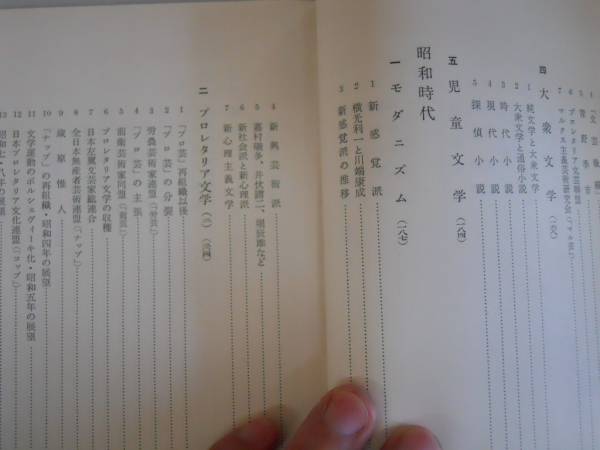 プロレタリア文芸聯盟
マルクス主義芸術研究会(「マル芸」)
四 大衆文学
1 純文学と大衆文学
2 大衆文学と通俗小説
3 時代小説
4 現代小説
5 探偵小説
五 児童文学 (一八四)
昭和時代
一 モダニズム (一八七)
1 新感覚派
2 横光利一と川端康成
3 新感覚派の推移
4 新興芸術派
5 嘉村礒多、井伏鱒二、堀辰雄など
6 新社会派と新心理派
7 新心理主義文学
二 プロレタリア文学(二)
1 「プロ芸」再組織以後
2 「プロ芸」の分裂
3 労農芸術家連盟(「労芸」)
4 「プロ芸」の主張
5 前衛芸術家同盟(「前芸」)
6 プロレタリア文学の収穫
7 日本左翼文芸家総連合
8 全日本無産者芸術連盟(「ナップ」)
9 蔵原惟人
10 「ナップ」の再組織・昭和四年の展望
11 文学運動のボルシェヴィーキ化・昭和五年の展望
12 日本プロレタリア文化連盟(「コップ」)
13 昭和七・八年の展望